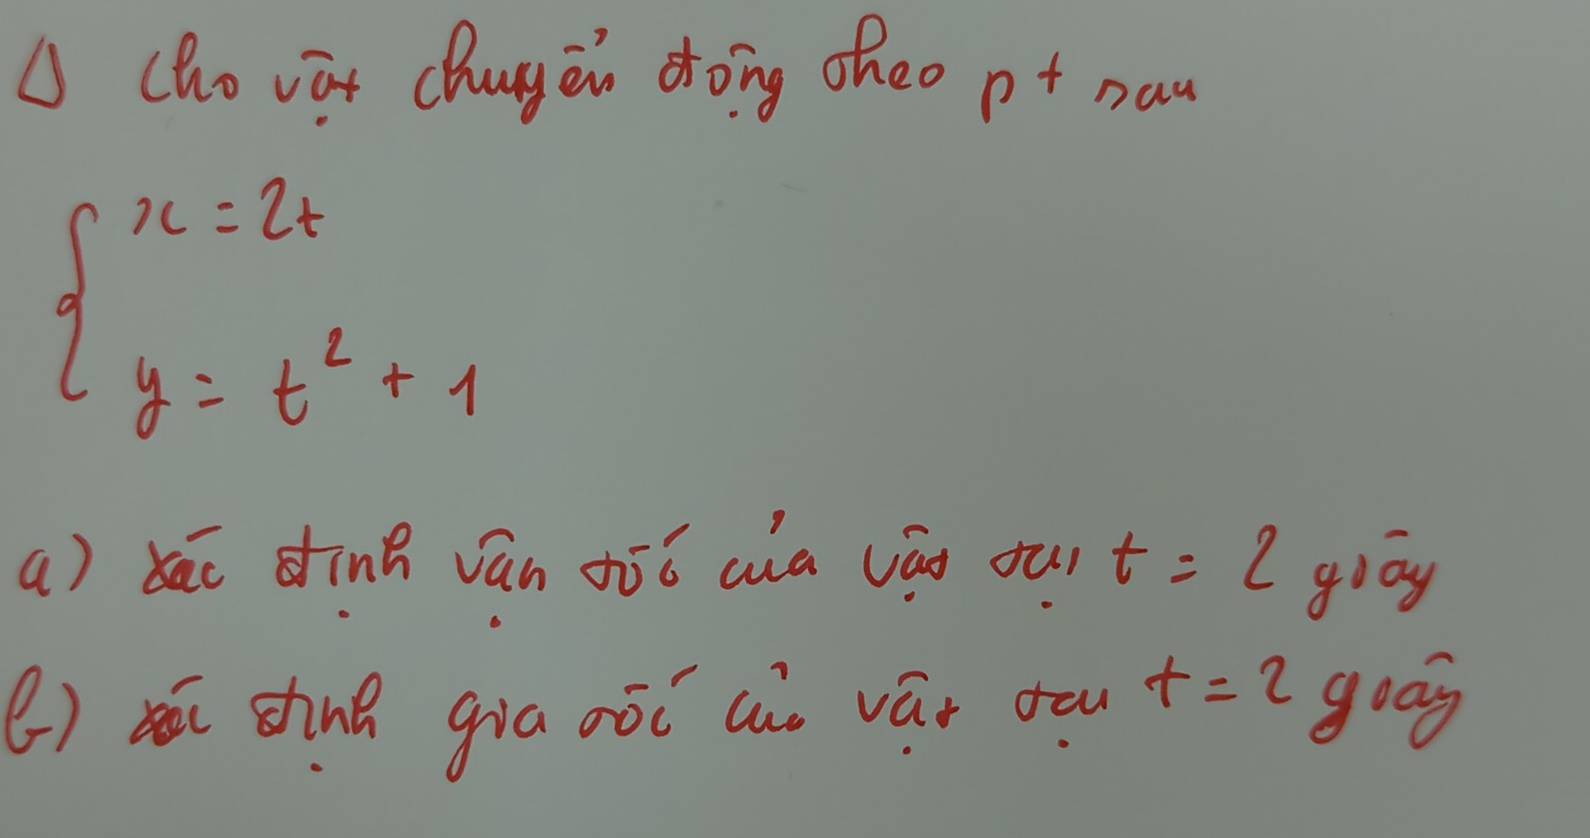 Δ Cho vật chuyển động theo pt sau
{ x = 2t
y = t² + 1
a) xác định vận tốc của vật tại t = 2 giây
b) xác định gia tốc của vật tại t = 2 giây